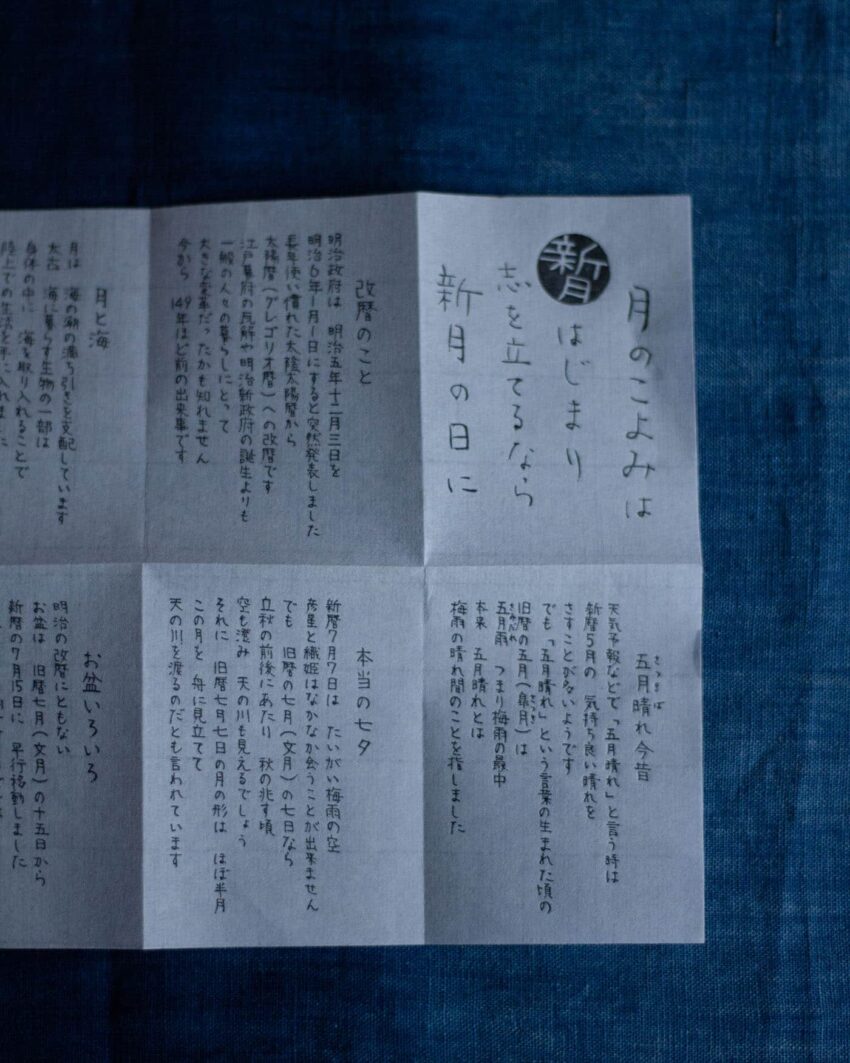 新月
月のこよみは
はじまり
志を立てるなら
新月の日に
改暦のこと
明治政府は 明治五年十二月三日を
明治6年1月1日にすると突然発表しました
長年使い慣れた太陰太陽暦から
太陽暦(グレゴリオ暦)への改暦です
江戸幕府の瓦解や明治新政府の誕生よりも
一般の人々の暮らしにとって
大きな変革だったかも知れません
今から 149年ほど前の出来事です
月と海
月は 海の潮の満ち引きを支配しています
太古 海に暮らす生物の一部は
身体の中に 海を取り入れることで
陸上での生活を手に入れました
五月晴れ今昔
天気予報などで「五月晴れ」と言う時は
新暦5月の 気持ち良い晴れを
さすことが多いようです
でも「五月晴れ」という言葉の生まれた頃の
旧暦の五月(皐月)は
五月雨 つまり梅雨の最中
本来 五月晴れとは
梅雨の晴れ間のことを指しました
本当の七夕
新暦7月7日は たいがい梅雨の空
彦星と織姫はなかなか会うことが出来ません
でも 旧暦の七月(文月)の七日なら
立秋の前後にあたり 秋の兆す頃
空も澄み 天の川も見えるでしょう
それに 旧暦七月七日の月の形は ほぼ半月
この月を 舟に見立てて
天の川を渡るのだとも言われています
お盆いろいろ
明治の改暦にともない
お盆は 旧暦七月(文月)の十五日から
新暦の7月15日に 平行移動しました